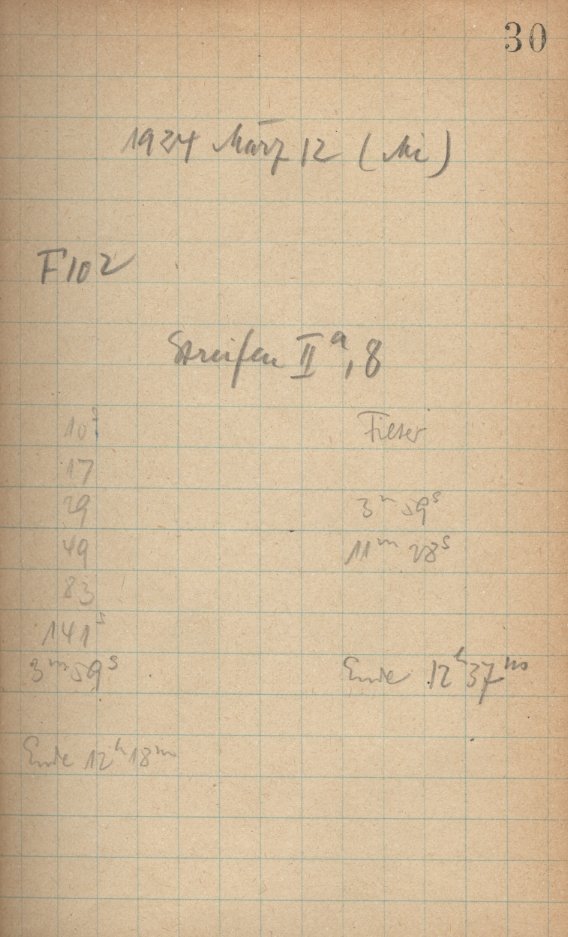 30
1924 März 12 (Mi)
F102
Streifen IIª, 8
10ˢ
17
29
49
83
141ˢ
3ᵐ 59ˢ
Ende 12ʰ 18ᵐ
Filter
3ᵐ 59ˢ
11ᵐ 28ˢ
Ende 12ʰ 37ᵐ